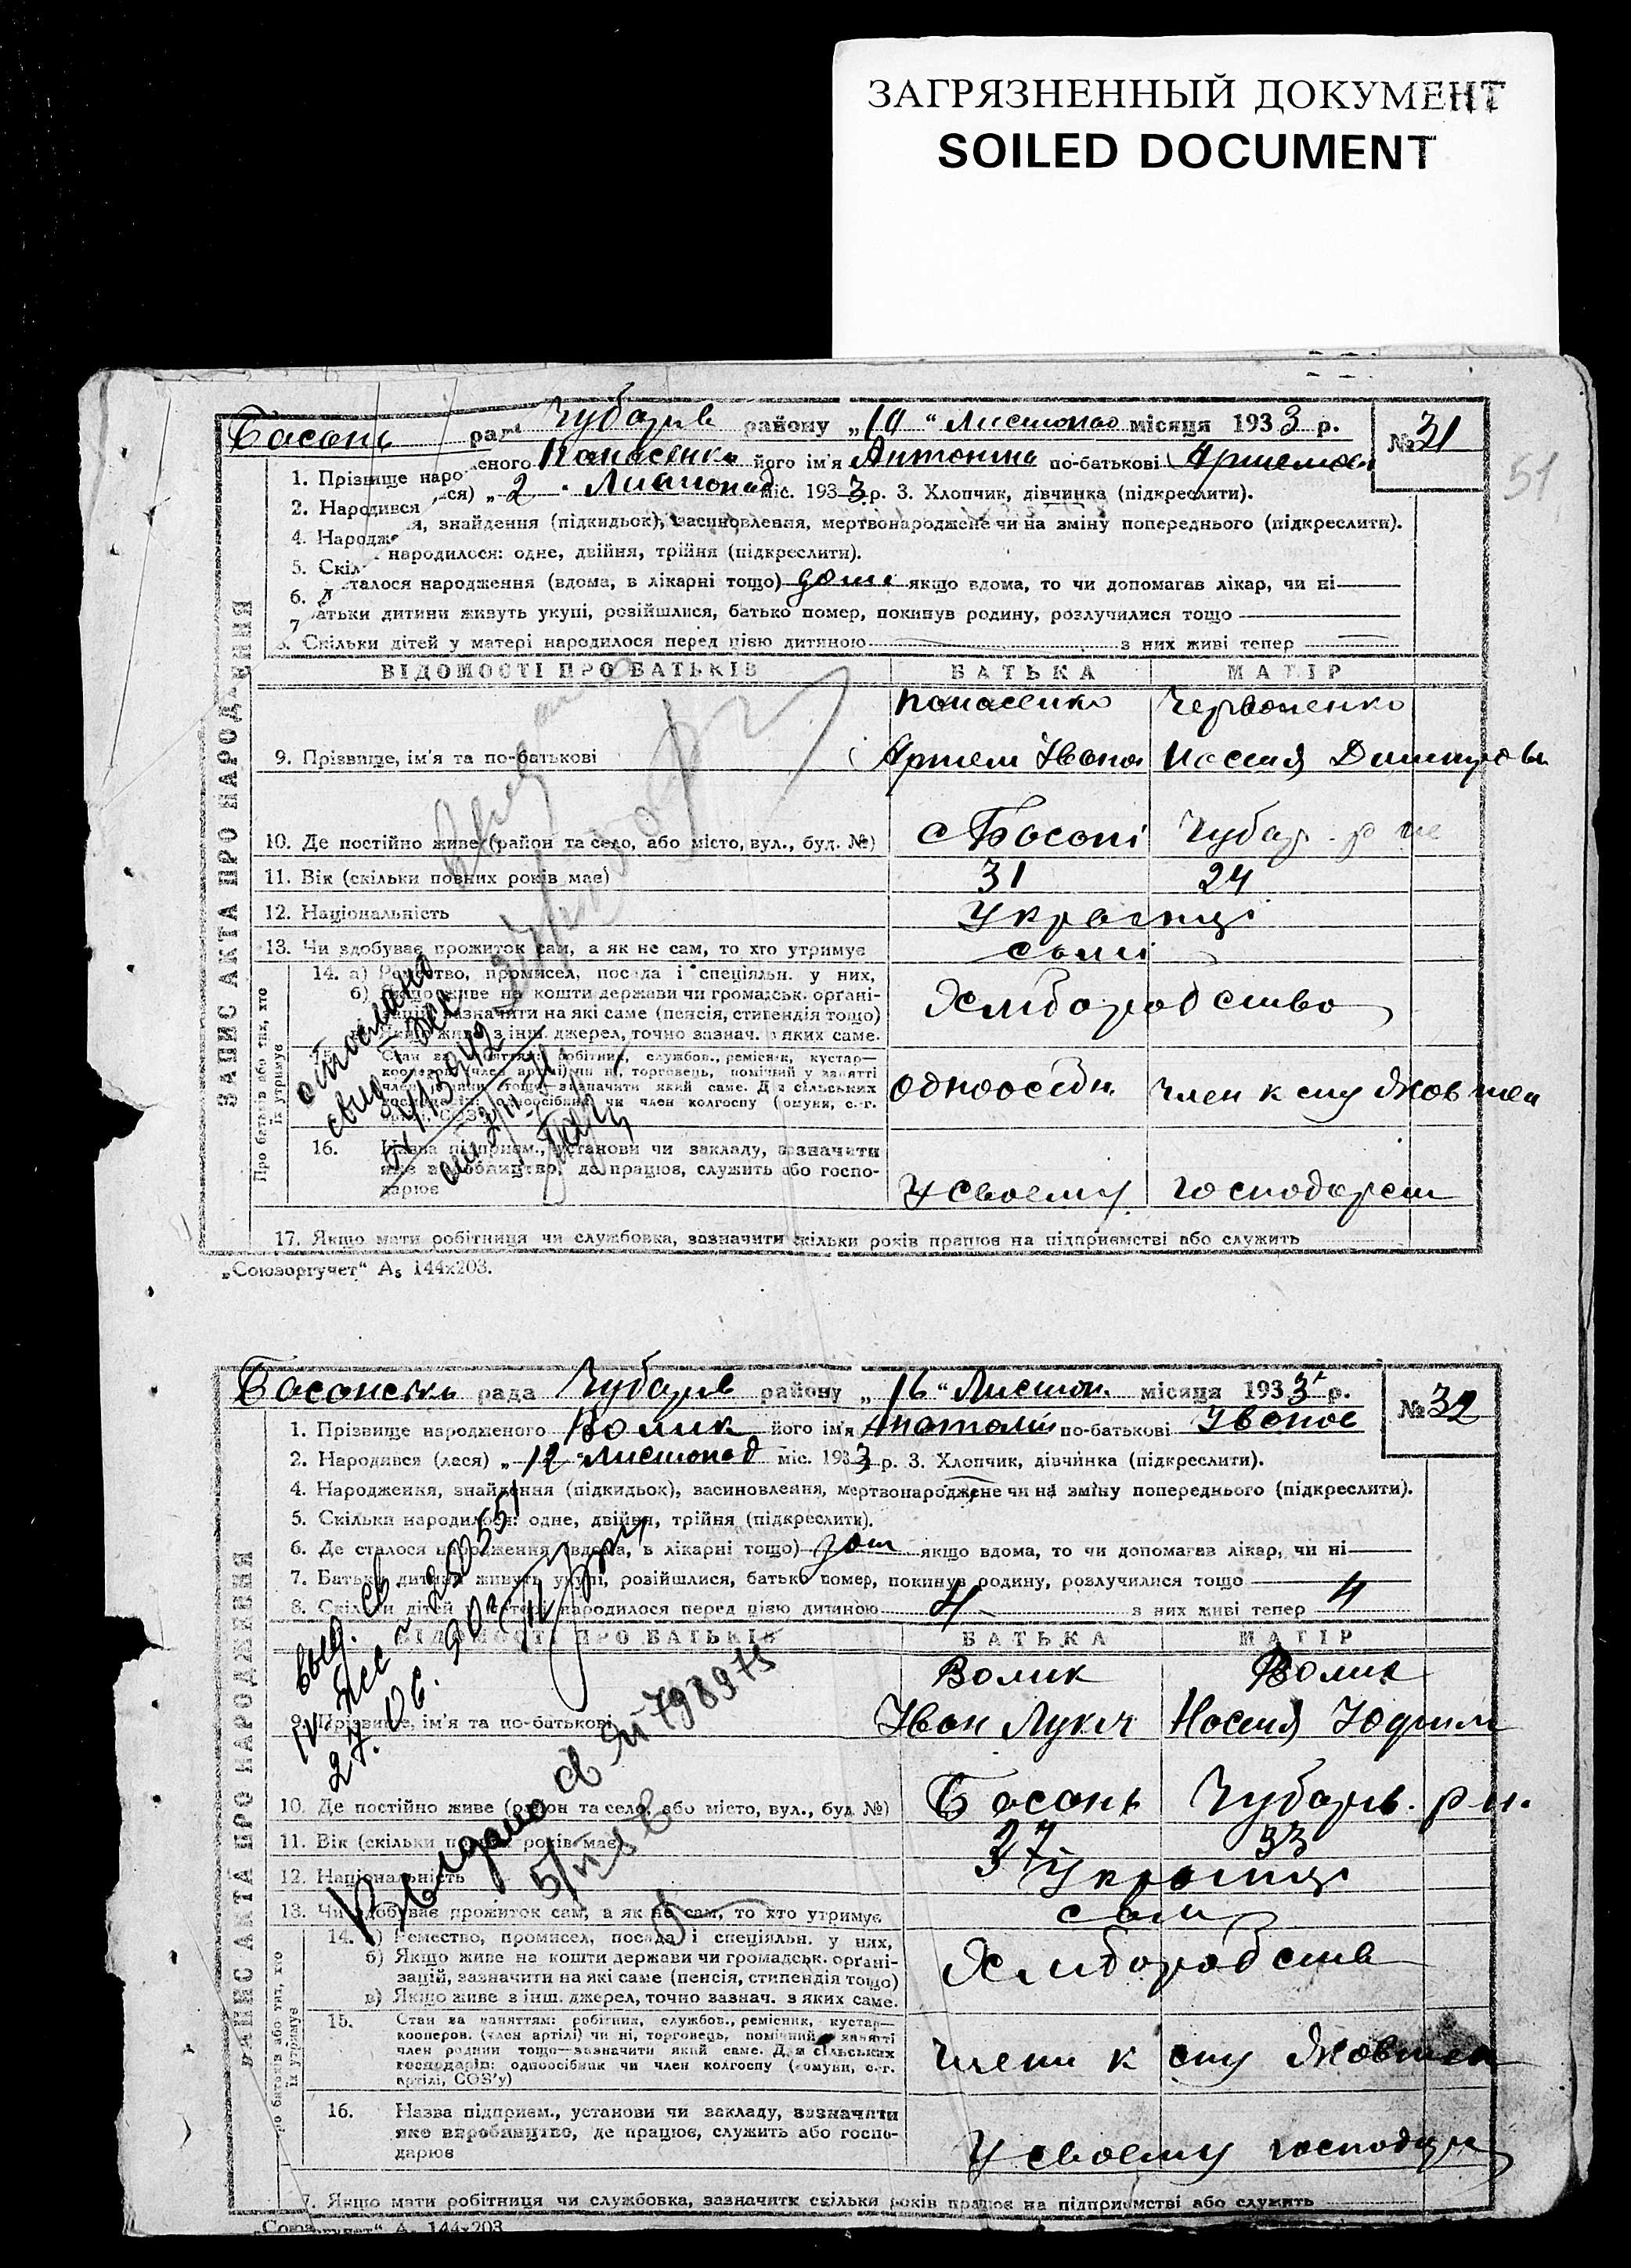 ЗАГРЯЗНЕННЫЙ ДОКУМЕНТ
SOILED DOCUMENT
51
Басань рада Чубарів району „10“ Листопад місяця 1933 р. № 31
1. Прізвище наро еного Панасенко його ім'я Антонина по-батькові Артемов
2. Народився ся) „2 Листопад міс. 1933 р. 3. Хлопчик, дівчинка (підкреслити).
4. Народже я, знайдення (підкидьок), засиновлення, мертвонароджене чи на зміну попереднього (підкреслити).
5. Скіл народилося: одне, двійня, трійня (підкреслити).
6. Д сталося народження (вдома, в лікарні тощо) дома якщо вдома, то чи допомагав лікар, чи ні
7 атьки дитини живуть укупі, розійшлися, батько помер, покинув родину, розлучилися тощо
Скільки дітей у матері народилося перед цією дитиною з них живі тепер
ЗАПИС АКТА ПРО НАРОДЖЕННЯ
ВІДОМОСТІ ПРО БАТЬКІВ БАТЬКА МАТІР
Панасенко Червоненко
9. Прізвище, ім'я та по-батькові Артем Івано
10. Де постійно живе (район та село, або місто, вул., буд. №) с Басані Чубар. р не
11. Вік (скільки повних років має) 31 24
12. Національність Українці
13. Чи здобуває прожиток сам, а як не сам, то хто утримує самі
Про батьків або тих, хто їх утримує
14. а) Ремество, промисел, посада і спеціяльн. у них,
б) Якщо живе на кошти держави чи громадськ. органі-
зацій, зазначити на які саме (пенсія, стипендія тощо) Хліборобство
Якщо живе з інш. джерел, точно зазнач. з яких саме.
Стан за заняттям: робітник, службов., ремісник, кустар—
кооперов. (член артілі) чи ні, торговець, помічний у занятті
член родини тощо—зазначити який саме. Для сільських
господарів: одноосібник чи член колгоспу (комуни, с.-г. одноосібн. член к спу Жовтен
16. Назва підприєм., установи чи закладу, зазначити
яке виробництво, де працює, служить або госпо-
дарює У своему господарст
17. Якщо мати робітниця чи службовка, зазначити скільки років працює на підприємстві або служить
„Союзоргучет“ А₅ 144x203.
Басанська рада Чубарів району „16“ Листоп. місяця 1933 р. № 32
1. Прізвище народженого Волик його ім'я Анатолій по-батькові Іванов
2. Народився (лася) „12“ листопад міс. 1933 р. 3. Хлопчик, дівчинка (підкреслити).
4. Народження, знайдення (підкидьок), засиновлення, мертвонароджене чи на зміну попереднього (підкреслити).
5. Скільки народилося: одне, двійня, трійня (підкреслити).
6. Де сталося народження (вдома, в лікарні тощо) дом якщо вдома, то чи допомагав лікар, чи ні
7. Батьки дитини живуть укупі, розійшлися, батько помер, покинув родину, розлучилися тощо
8. Скільки дітей у матері народилося перед цією дитиною 4 з них живі тепер 4
ЗАПИС АКТА ПРО НАРОДЖЕННЯ
ВІДОМОСТІ ПРО БАТЬКІВ БАТЬКА МАТІР
Волик Волик
9. Прізвище, ім'я та по-батькові Іван Лукич
10. Де постійно живе (район та село, або місто, вул., буд. №) Басань Чубарів. р н.
11. Вік (скільки повних років має) 37 33
12. Національність Українці
13. Чи здобуває прожиток сам, а як не сам, то хто утримує сами
Про батьків або тих, хто їх утримує
14. а) Ремество, промисел, посада і спеціяльн. у них,
б) Якщо живе на кошти держави чи громадськ. органі-
зацій, зазначити на які саме (пенсія, стипендія тощо) Хліборобств
в) Якщо живе з інш. джерел, точно зазнач. з яких саме.
15. Стан за заняттям: робітник, службов., ремісник, кустар—
кооперов. (член артілі) чи ні, торговець, помічний у занятті
член родини тощо—зазначити який саме. Для сільських
господарів: одноосібник чи член колгоспу (комуни, с.-г. члени к спу Жовтен
артілі, СОЗ'у)
16. Назва підприєм., установи чи закладу, зазначити
яке виробництво, де працює, служить або госпо-
дарює У своему господар
7. Якщо мати робітниця чи службовка, зазначити скільки років працює на підприємстві або служить
„Союзоргучет“ А₅ 144x203
Выдано св 798975